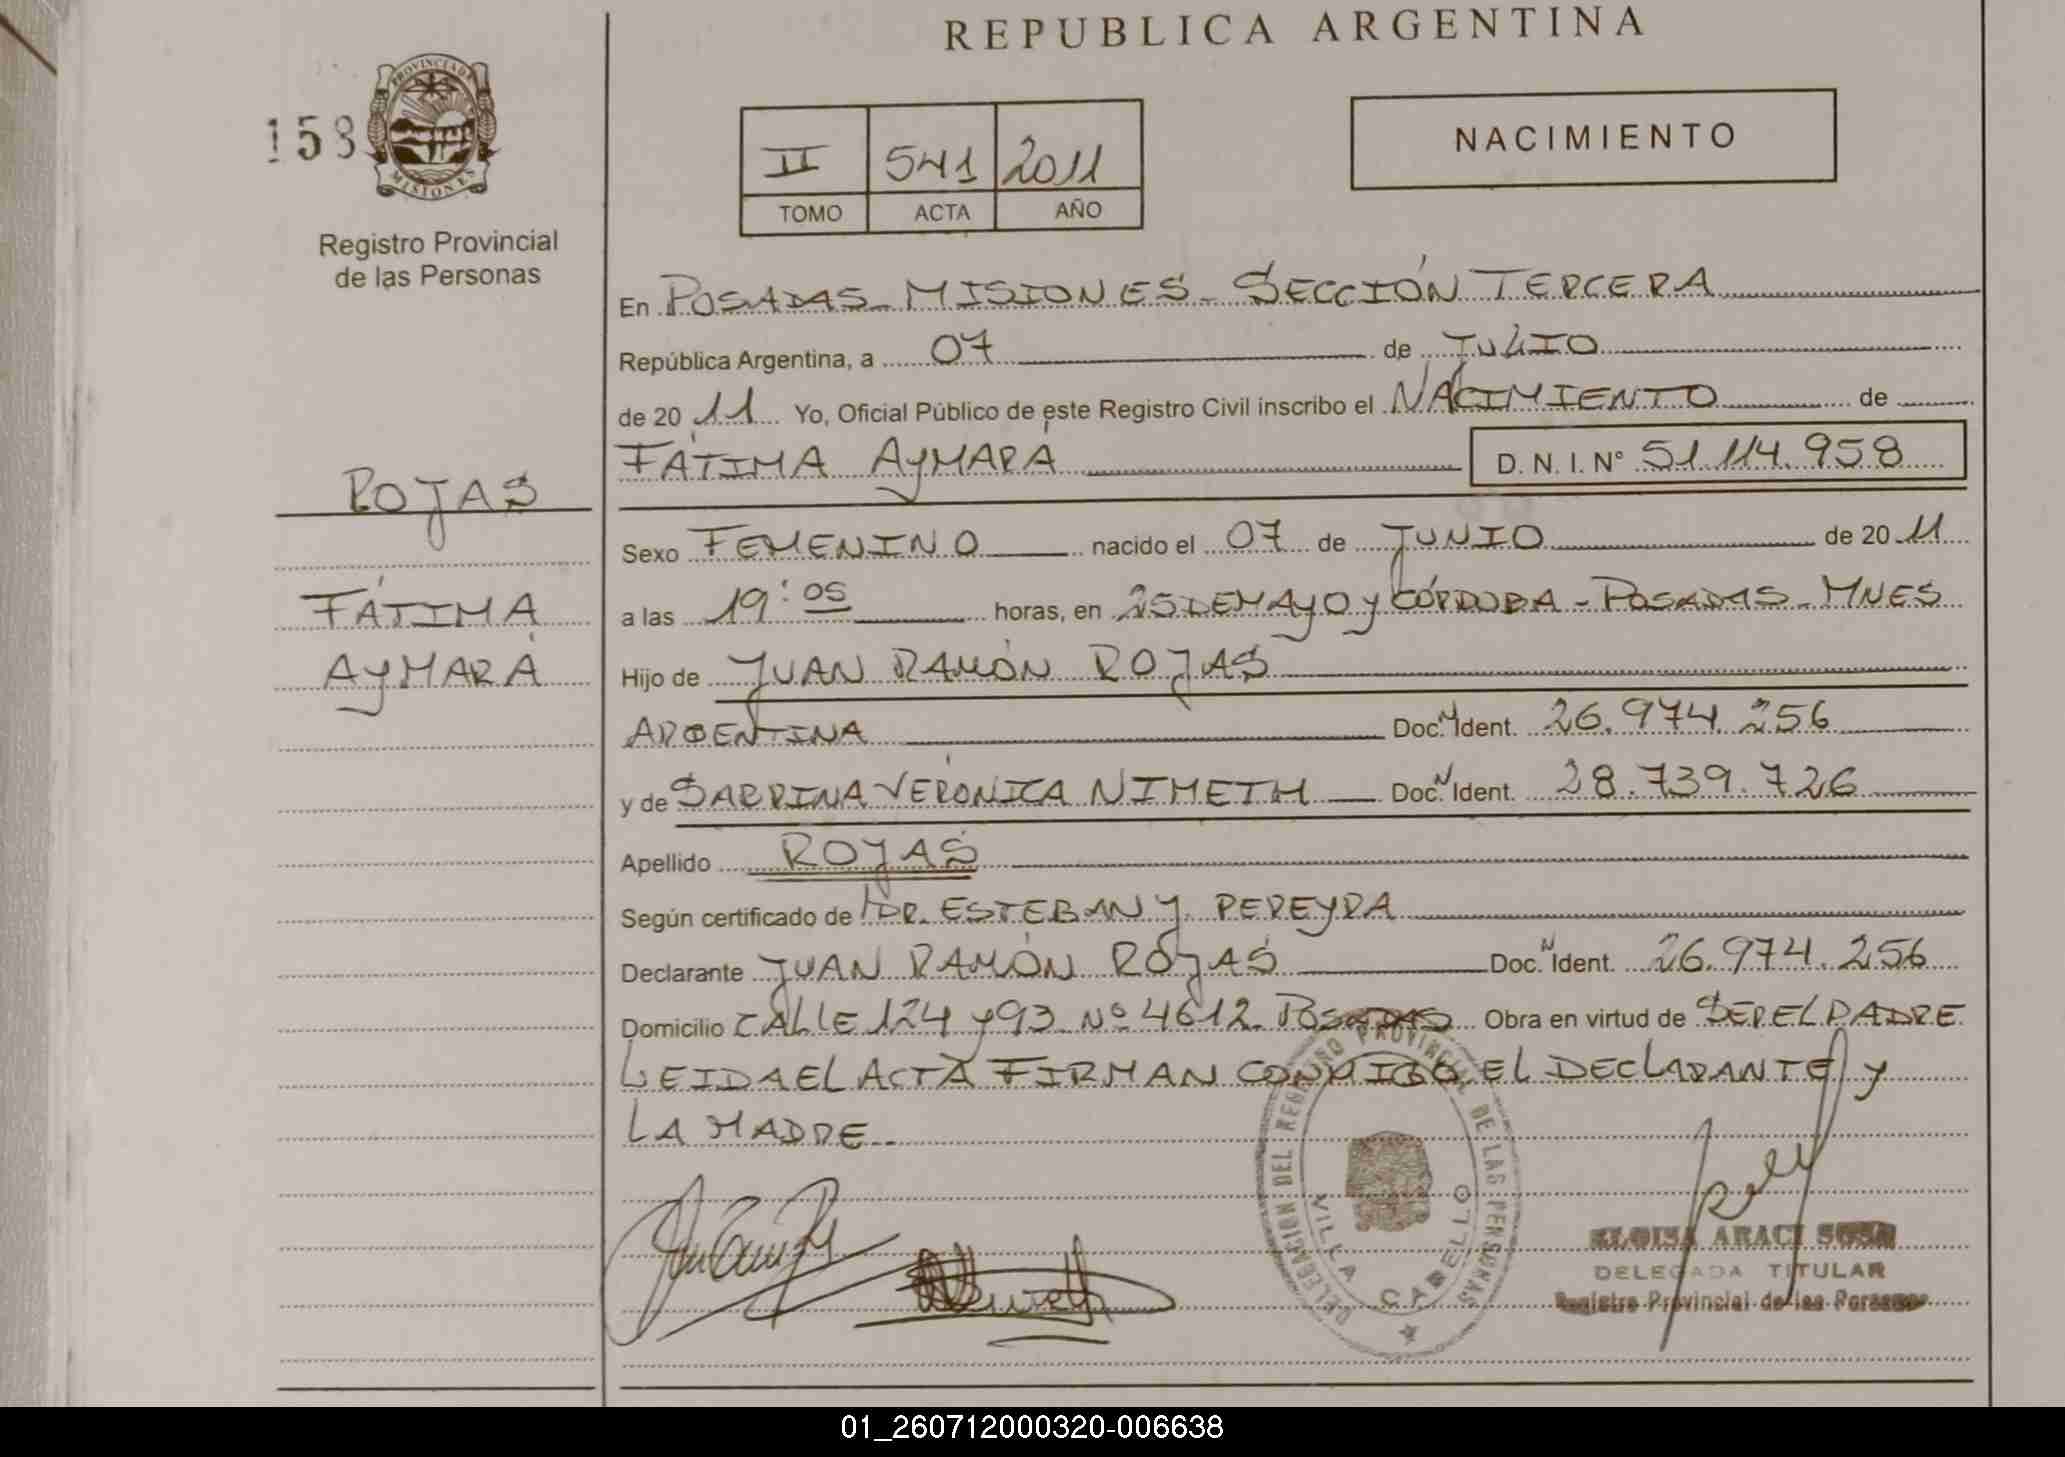 REPUBLICA ARGENTINA
NACIMIENTO
158
PROVINCIA DE MISIONES
Registro Provincial
de las Personas
II 541 2011
TOMO ACTA AÑO
En POSADAS - MISIONES - SECCIÓN TERCERA
República Argentina, a 07 de JULIO
de 20 11 Yo, Oficial Público de este Registro Civil inscribo el NACIMIENTO de
FÁTIMA AYMARÁ D. N. I. N° 51.114.958
ROJAS
FÁTIMA
AYMARÁ
Sexo FEMENINO nacido el 07 de JUNIO de 20 11
a las 19:05 horas, en 25 DE MAYO Y CÓRDOBA - POSADAS - MNES
Hijo de JUAN RAMÓN ROJAS
ARGENTINA Doc. N Ident. 26.974.256
y de SABRINA VERÓNICA NIMETH Doc. N Ident. 28.739.726
Apellido ROJAS
Según certificado de DR. ESTEBAN Y. PEREYRA
Declarante JUAN RAMÓN ROJAS Doc. N Ident. 26.974.256
Domicilio CALLE 124 Y 93 Nº 4612 POSADAS Obra en virtud de SER EL PADRE
LEIDA EL ACTA FIRMAN CONMIGO EL DECLARANTE Y
LA MADRE.
DELEGACION DEL REGISTRO PROVINCIAL DE LAS PERSONAS
VILLA CABELLO
ELOISA ARACI SOSA
DELEGADA TITULAR
Registro Provincial de las Personas
01_260712000320-006638